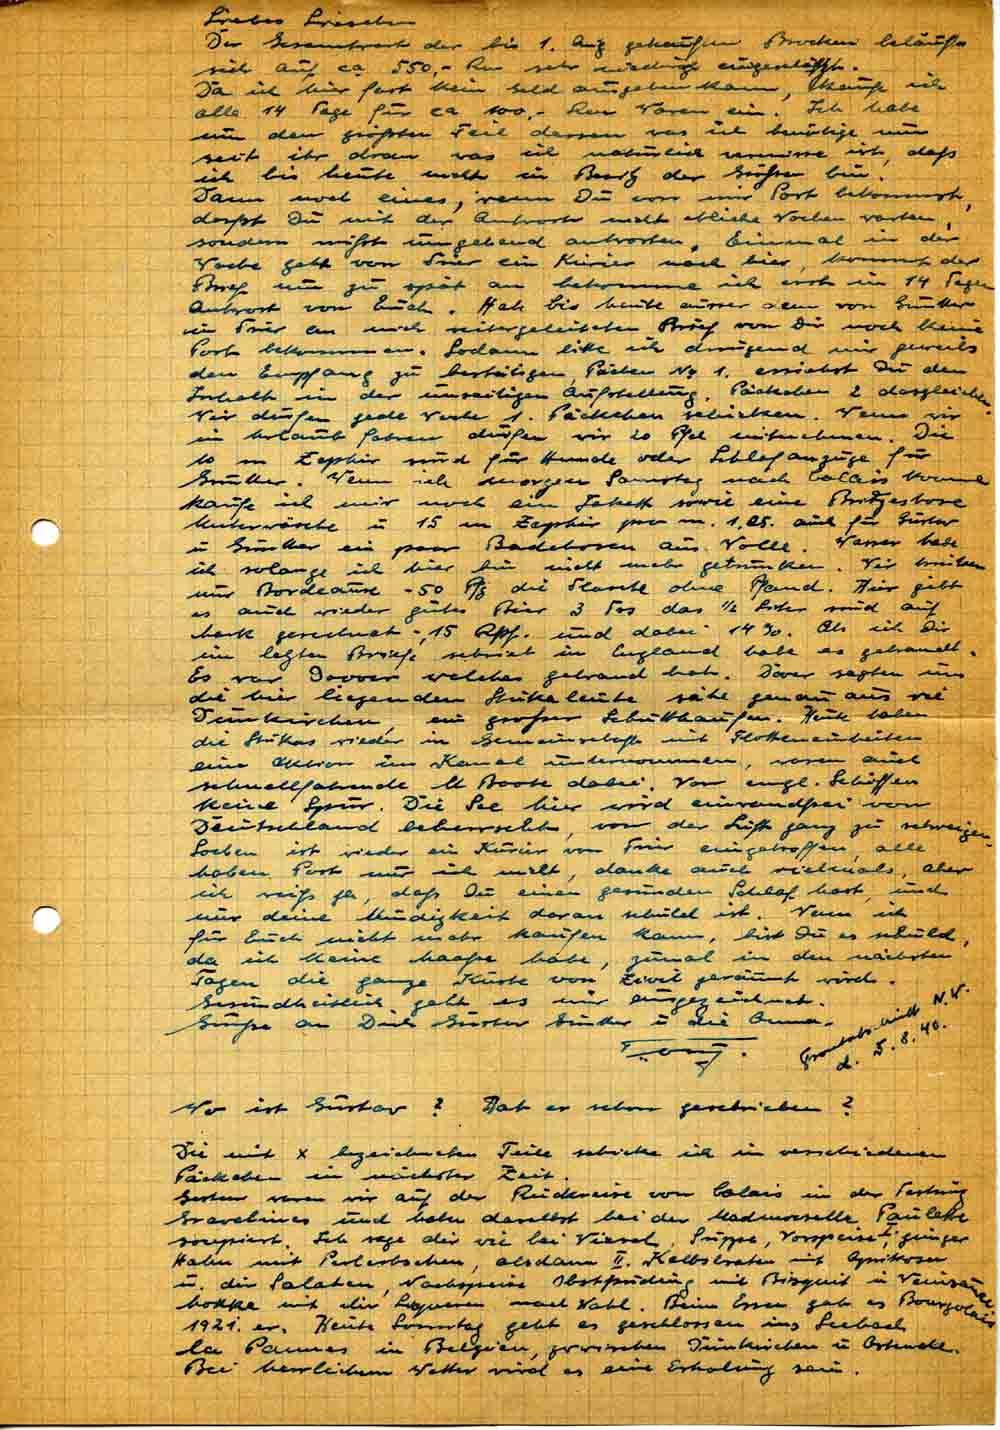 Liebes Lieschen
Der Gesamtwert der bis 1. Aug gekauften Brocken beläuft
sich auf ca 550,- Rm sehr niedrig eingeschätzt.
Da ich hier fast kein Geld ausgeben kann, kaufe ich
alle 14 Tage für ca 100,- Rm Waren ein. Ich habe
nun den größten Teil dessen was ich benötige nun
seit ihr dran was ich natürlich vermisse ist, daß
ich bis heute nicht in Besitz der Größen bin.
Dann noch eines, wenn Du von mir Post bekommst,
darfst Du mit der Antwort nicht etliche Wochen warten,
sondern mußt umgehend antworten. Einmal in der
Woche geht von Trier ein Kurier nach hier, kommt der
Brief nun zu spät an bekomme ich erst in 14 Tagen
Antwort von Euch. Hab bis heute ausser dem von Günther
in Trier an mich weitergeleiteten Brief von Dir noch keine
Post bekommen. Sodann bitte ich dringend mir jeweils
den Empfang zu bestätigen, Päckchen No 1. ersiehst Du den
Inhalt in der umseitigen Aufstellung, Päckchen 2 dasgleichen.
Wir dürfen jede Woche 1. Päckchen schicken. Wenn wir
in Urlaub fahren dürfen wir 20 Pfd mitnehmen. Die
10 m Zephir sind für Hemde oder Schlafanzüge für
Günther. Wenn ich morgen Samstag nach Calais komme
kaufe ich mir noch ein Jakett sowie eine Bridgeshose
Unterwäsche u 15 m Zephir pro m. 1,25. auch für Gustav
u Günther ein paar Badehosen aus Wolle. Wasser habe
ich solange ich hier bin nicht mehr getrunken. Wir trinken
nur Bordeaux -50 Pfg die Flasche ohne Pfand. Hier gibt
es auch wieder gutes Bier 3 Frs das ½ Liter sind auf
Mark gerechnet -,15 Rpf. und dabei 14%. Als ich Dir
im letzten Briefe schrieb in England habe es gebrannt.
Es war Dover welches gebrand hat. Dover sagten uns
die hier liegenden Stukaleute sähe genau aus wie
Dünkirchen, ein großer Schutthaufen. Heute haben
die Stukas wieder in Gemeinschaft mit Flotteneinheiten
eine Aktion im Kanal unternommen, waren auch
schnellfahrende U Boote dabei. Von engl. Schiffen
keine Spur. Die See hier wird einwandfrei von
Deutschland beherrscht, von der Luft ganz zu schweigen.
Soeben ist wieder ein Kurier von Trier eingetroffen, alle
haben Post nur ich nicht, danke auch vielmals, aber
ich weiß ja, daß Du einen gesunden Schlaf hast, und
nur deine Müdigkeit daran schuld ist. Wenn ich
für Euch nicht mehr kaufen kann, bist Du es schuld,
da ich keine Maaße habe, zumal in den nächsten
Tagen die ganze Küste von Zivil geräumt wird.
Gesundheitlich geht es mir ausgezeichnet.
Grüße an Dich Gustav Günther u die Oma.
Tony.
N.W.
d. 5.8.40.
Wo ist Gustav? Hat er schon geschrieben?
Die mit x bezeichneten Teile schicke ich in verschiedenen
Päckchen in nächster Zeit.
Gestern waren wir auf der Rückreise von Calais in der Festung
Gravelines und haben daselbst bei der Madmoiselle Paulette
soupiert. Ich sage dir wie bei Viesel, Suppe, Vorspeise I, junger
Hahn mit Perlerbschen, alsdann II. Kalbsbraten mit Aprikosen
u. div Salaten, Nachspeise Obstpudding mit Bisquit in Weinsauce
Mokka mit div Liqueren nach Wahl. Beim Essen gab es
1921. er. Heute Sonntag geht es geschlossen ins Seebad
La Pannes in Belgien, zwischen Dünkirchen u Ostende.
Bei herrlichem Wetter wird es eine Erholung sein.